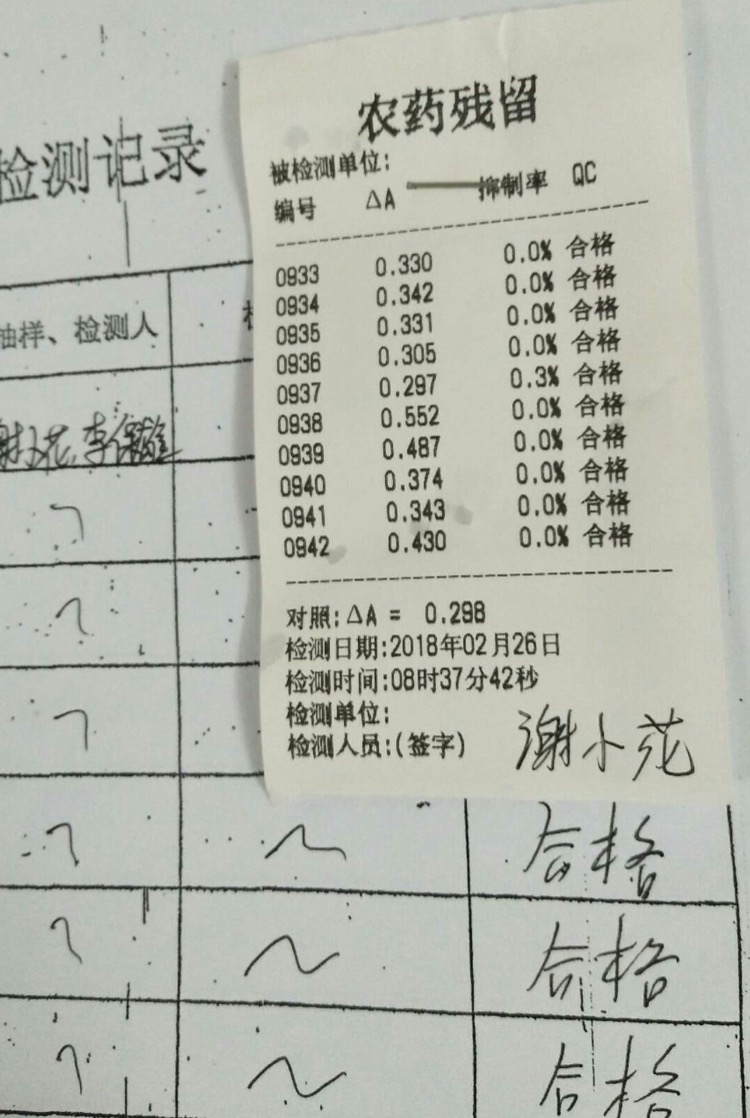 检测记录
抽样、检测人
谢小花、李保雄
农药残留
被检测单位:
编号 ΔA 抑制率 QC
0933 0.330 0.0% 合格
0934 0.342 0.0% 合格
0935 0.331 0.0% 合格
0936 0.305 0.0% 合格
0937 0.297 0.3% 合格
0938 0.552 0.0% 合格
0939 0.487 0.0% 合格
0940 0.374 0.0% 合格
0941 0.343 0.0% 合格
0942 0.430 0.0% 合格
对照:ΔA = 0.298
检测日期:2018年02月26日
检测时间:08时37分42秒
检测单位:
检测人员:(签字) 谢小花
合格
合格
合格